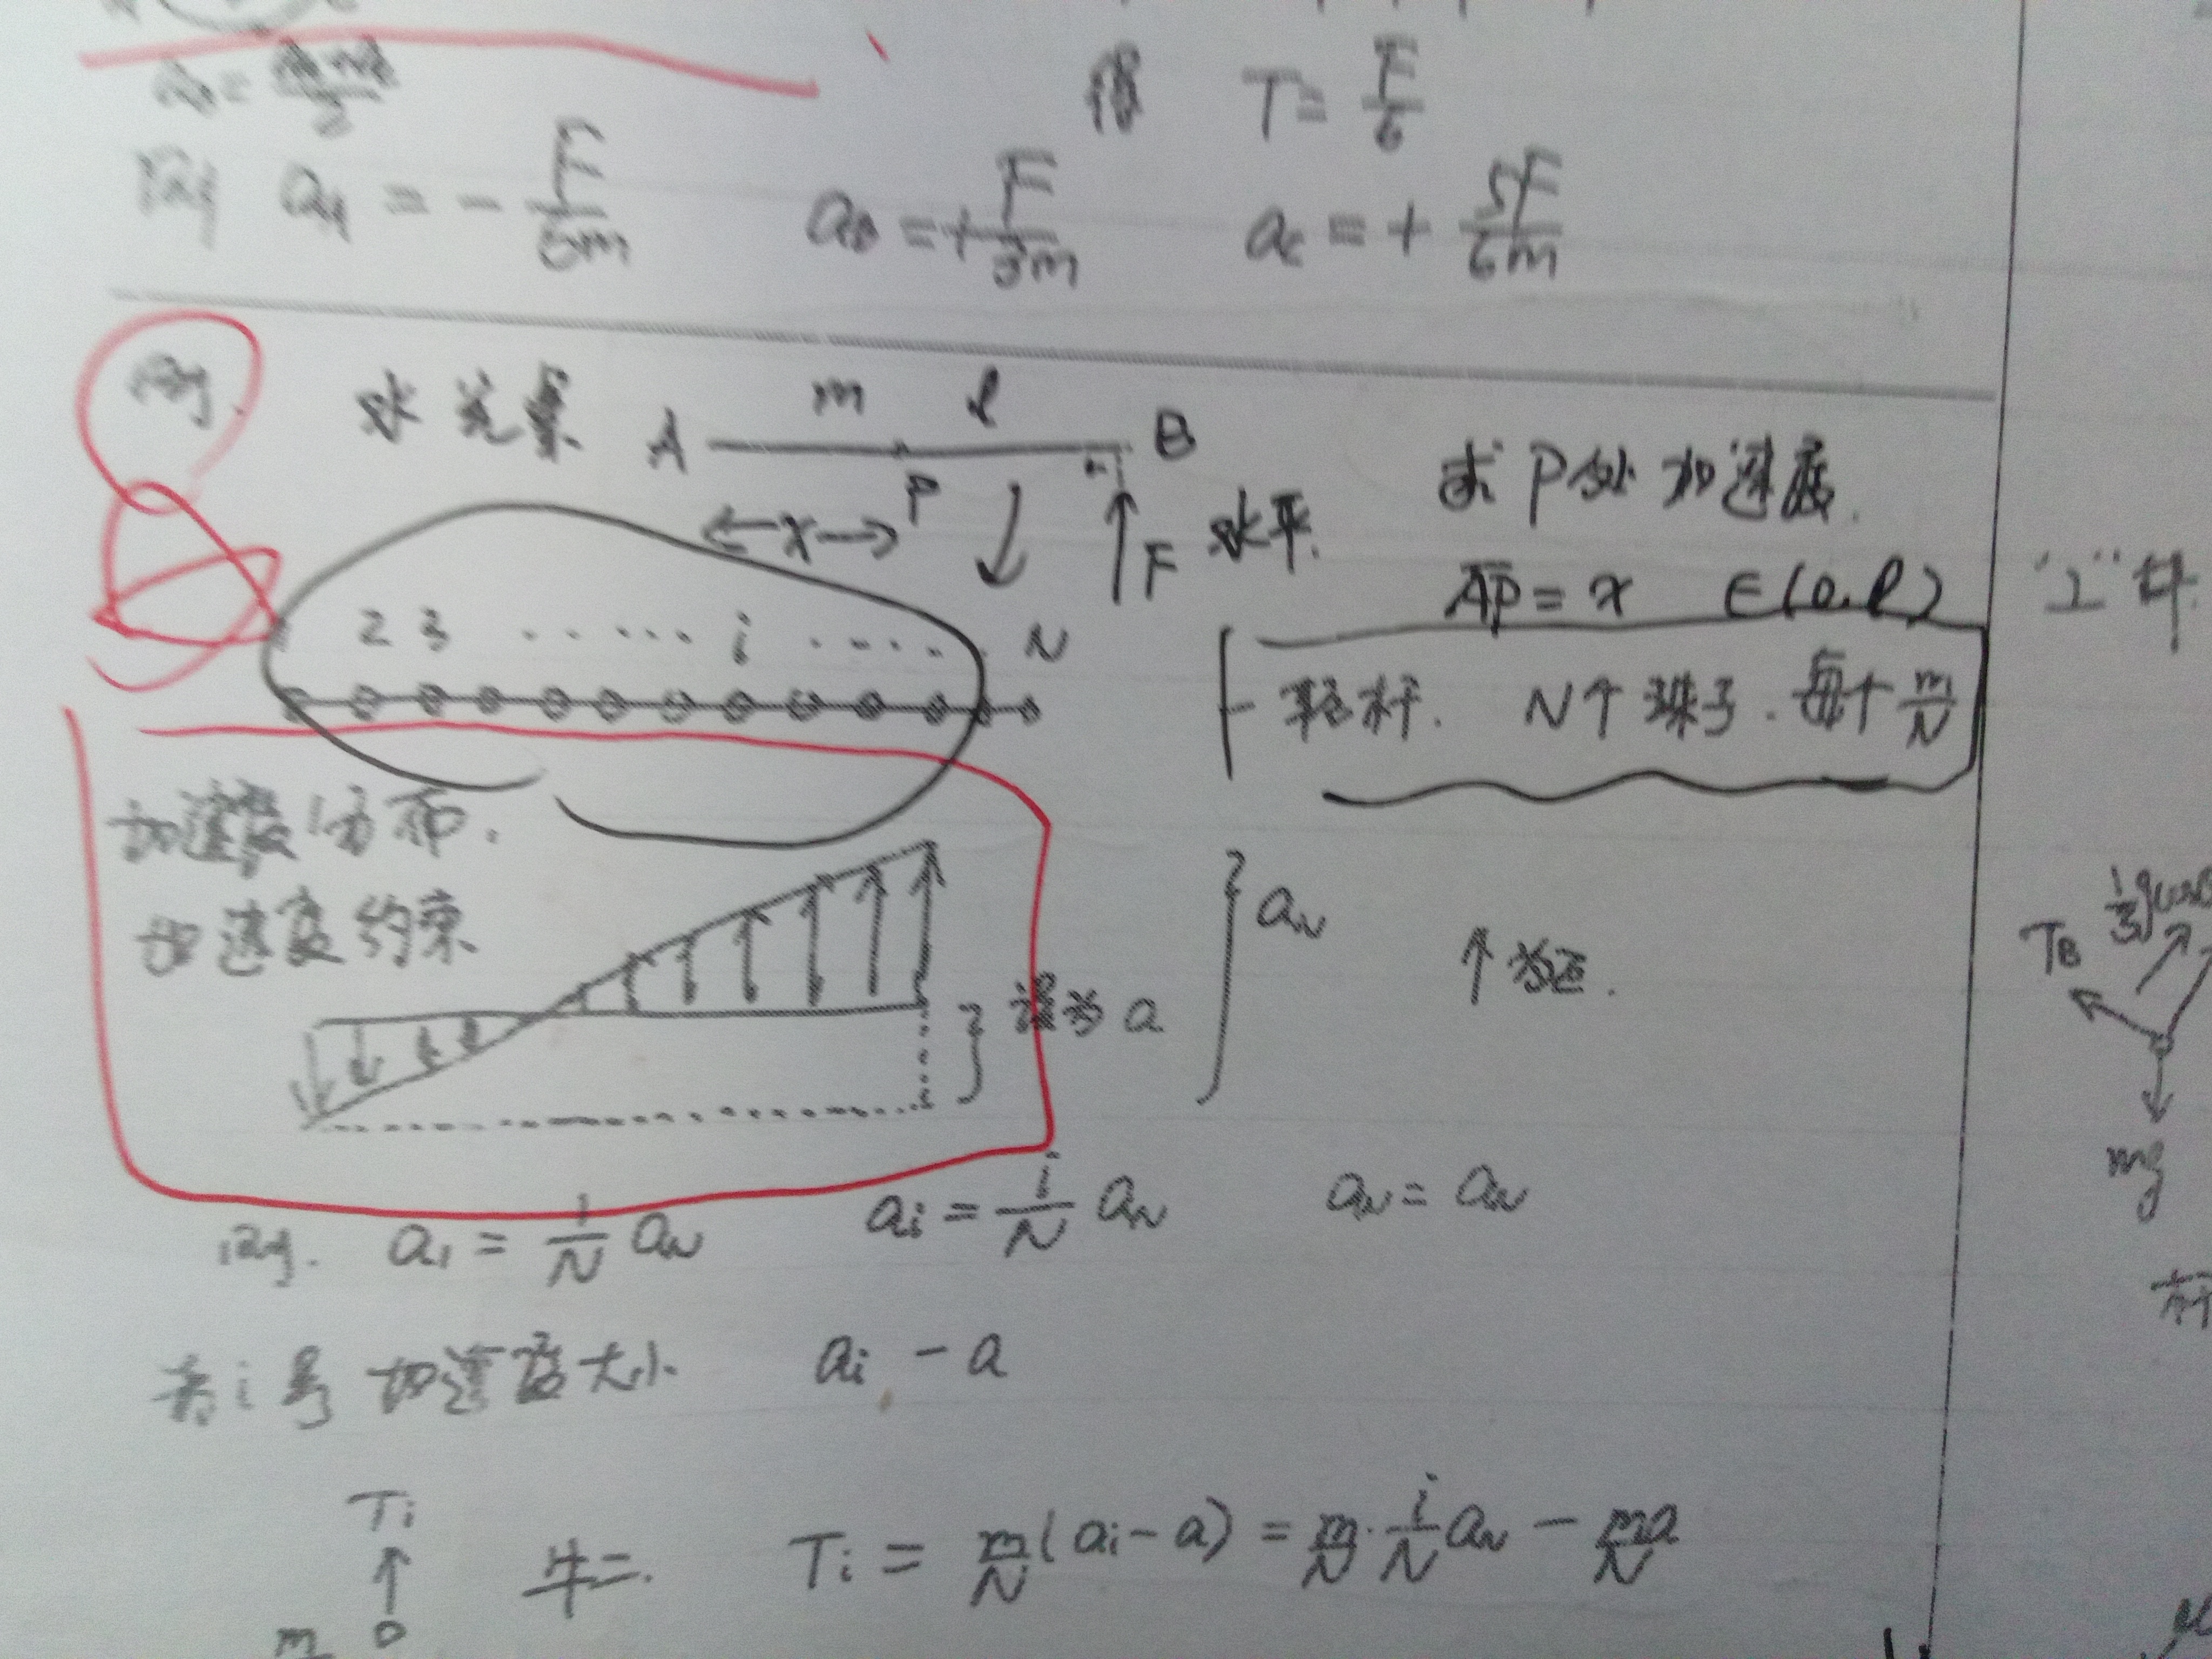 得 T = F/6
则 a_A = - F/6m a_B = + F/3m a_C = + 5F/6m
例. 水光素 A m l B
P
x F 水平.
求 P处 加速度.
AP = x ∈(0, l)
2 3 ...... i ...... N
轻杆. N个 珠子. 每个 m/N
"工"
加速度分布.
加速度约束
设为 a
a_N ↑ 为正.
T_B
mg
则. a_1 = 1/N a_N a_i = i/N a_N a_N = a_N
i号 加速度大小 a_i - a
T_i
牛二. T_i = m/N (a_i - a) = m/N · i/N a_N - ma/N
m